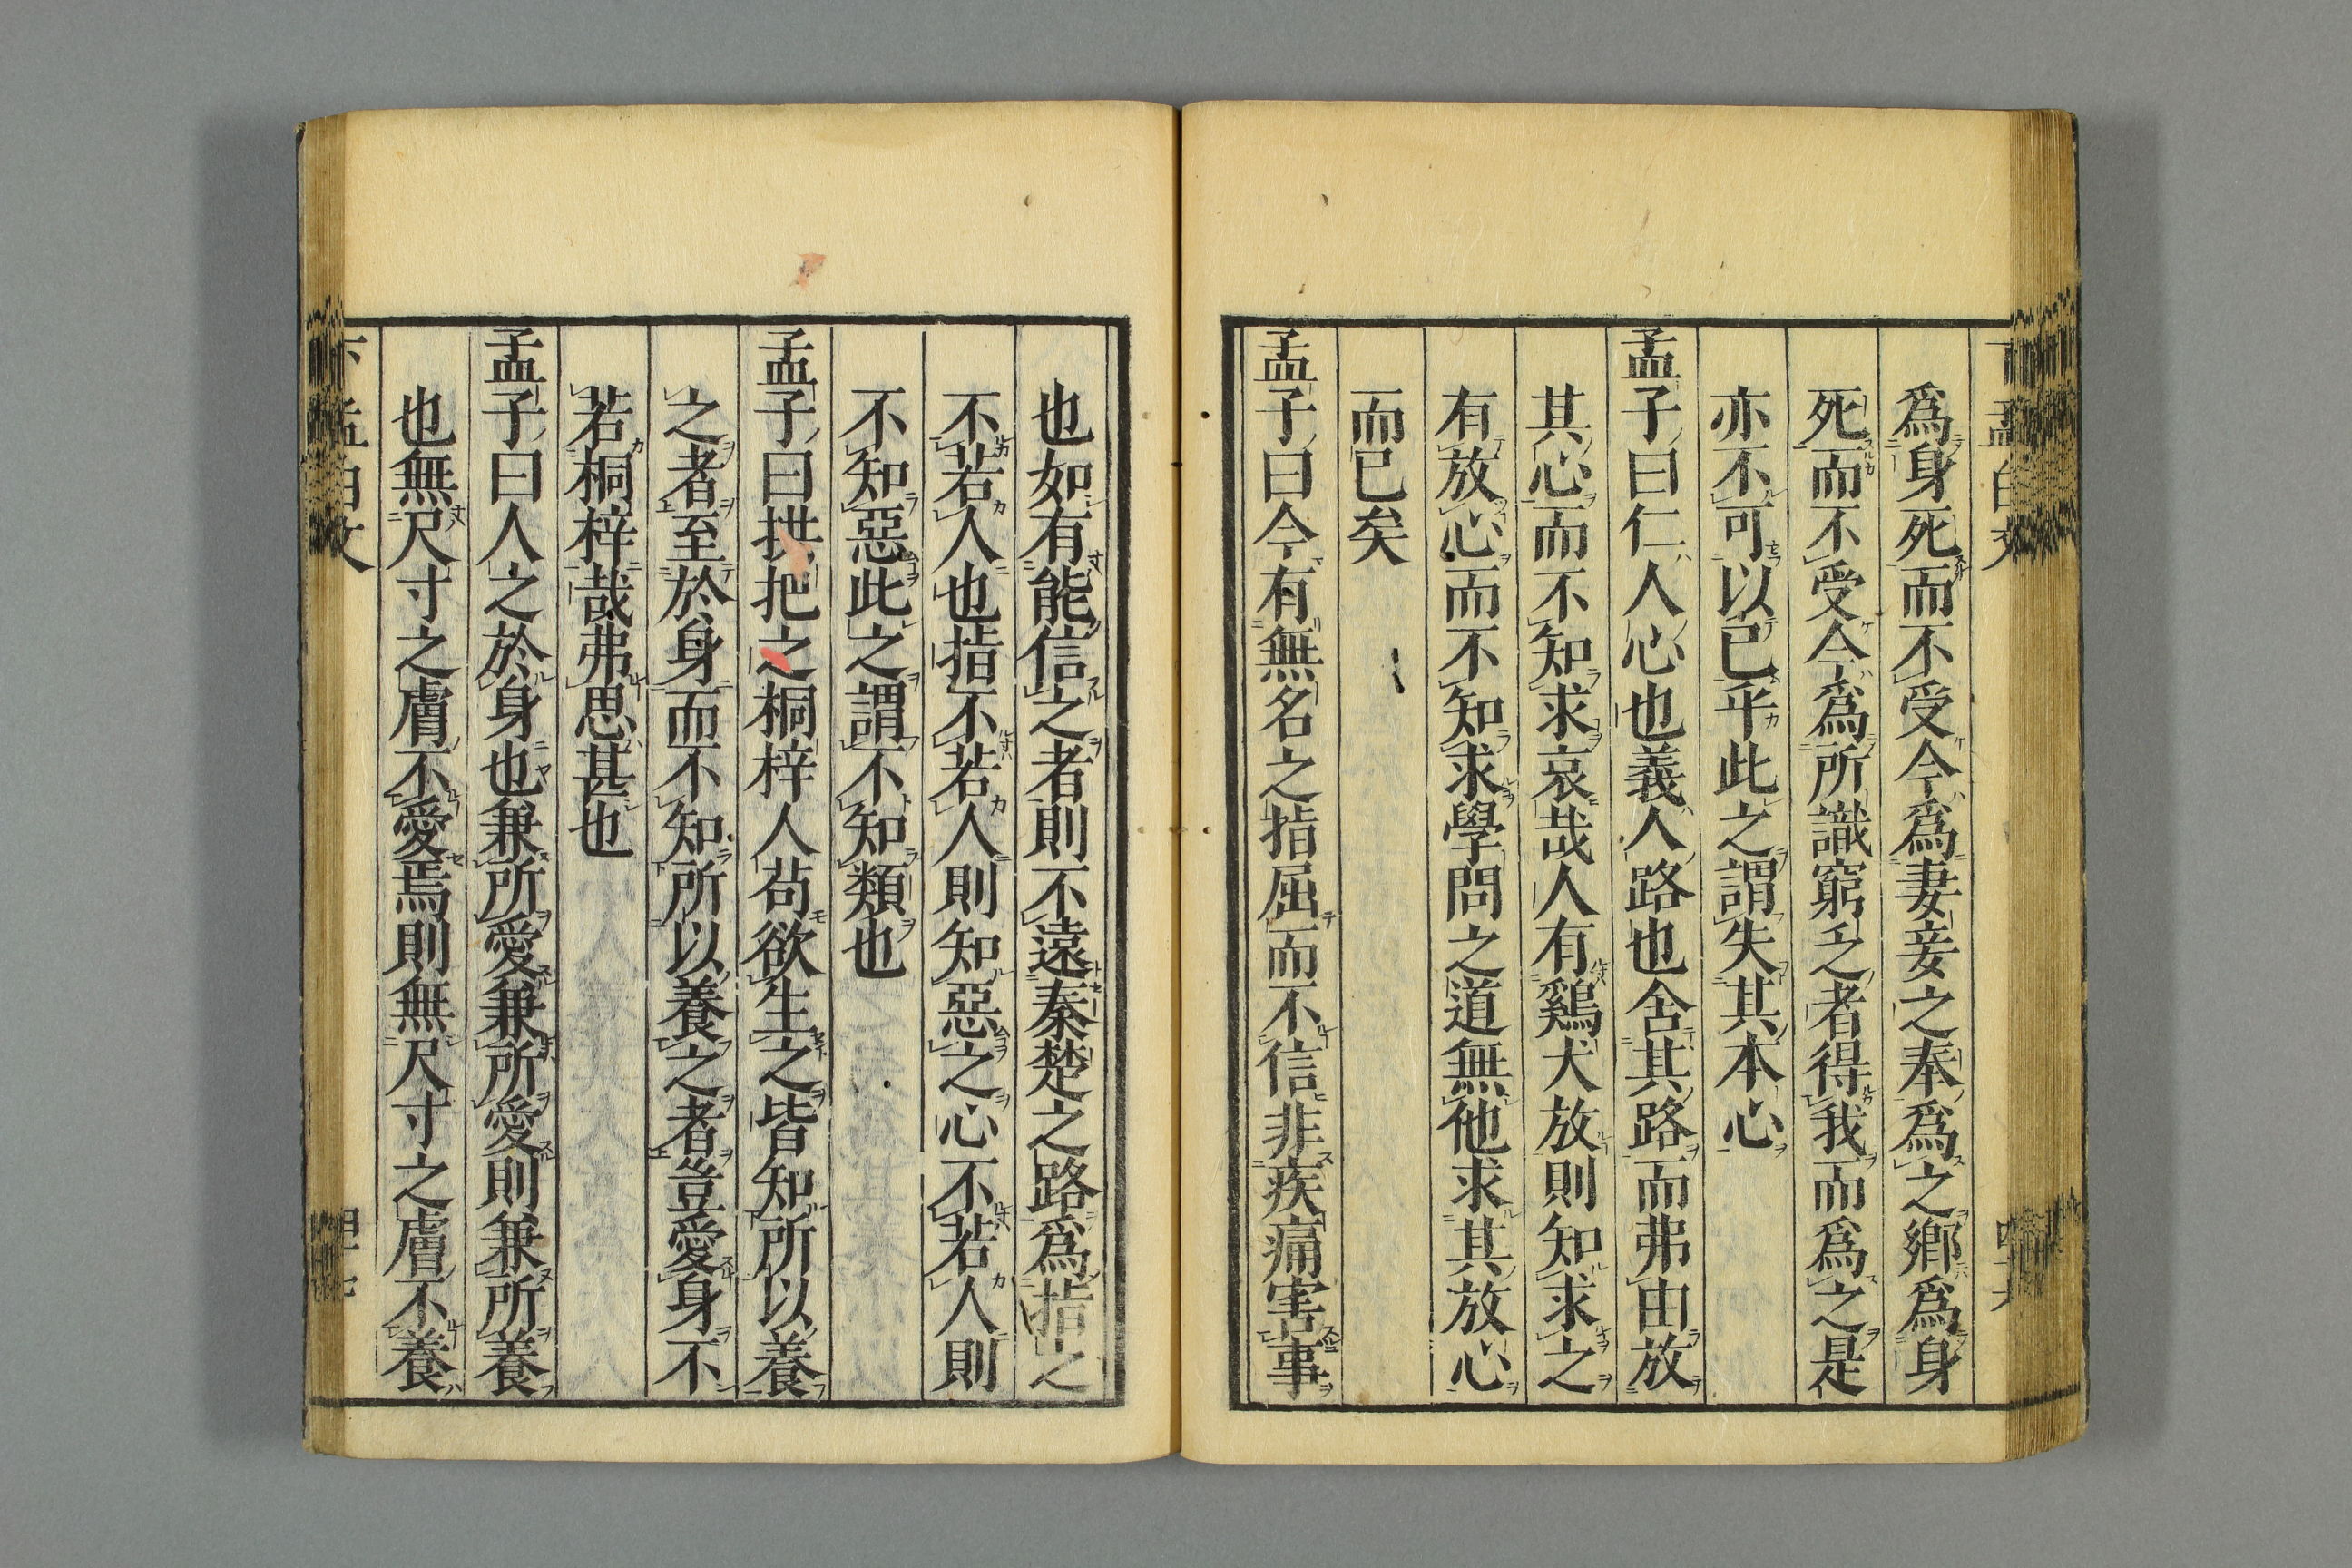 爲身死而不受今爲妻妾之奉爲之鄕爲身
死而不受今爲所識窮乏者得我而爲之是
亦不可以已乎此之謂失其本心
孟子曰仁人心也義人路也舍其路而弗由放
其心而不知求哀哉人有鷄犬放則知求之
有放心而不知求學問之道無他求其放心
而已矣
孟子曰今有無名之指屈而不信非疾痛害事
也如有能信之者則不遠秦楚之路爲指之
不若人也指不若人則知惡之心不若人則
不知惡此之謂不知類也
孟子曰拱把之桐梓人苟欲生之皆知所以養
之者至於身而不知所以養之者豈愛身不
若桐梓哉弗思甚也
孟子曰人之於身也兼所愛兼所愛則兼所養
也無尺寸之膚不愛焉則無尺寸之膚不養